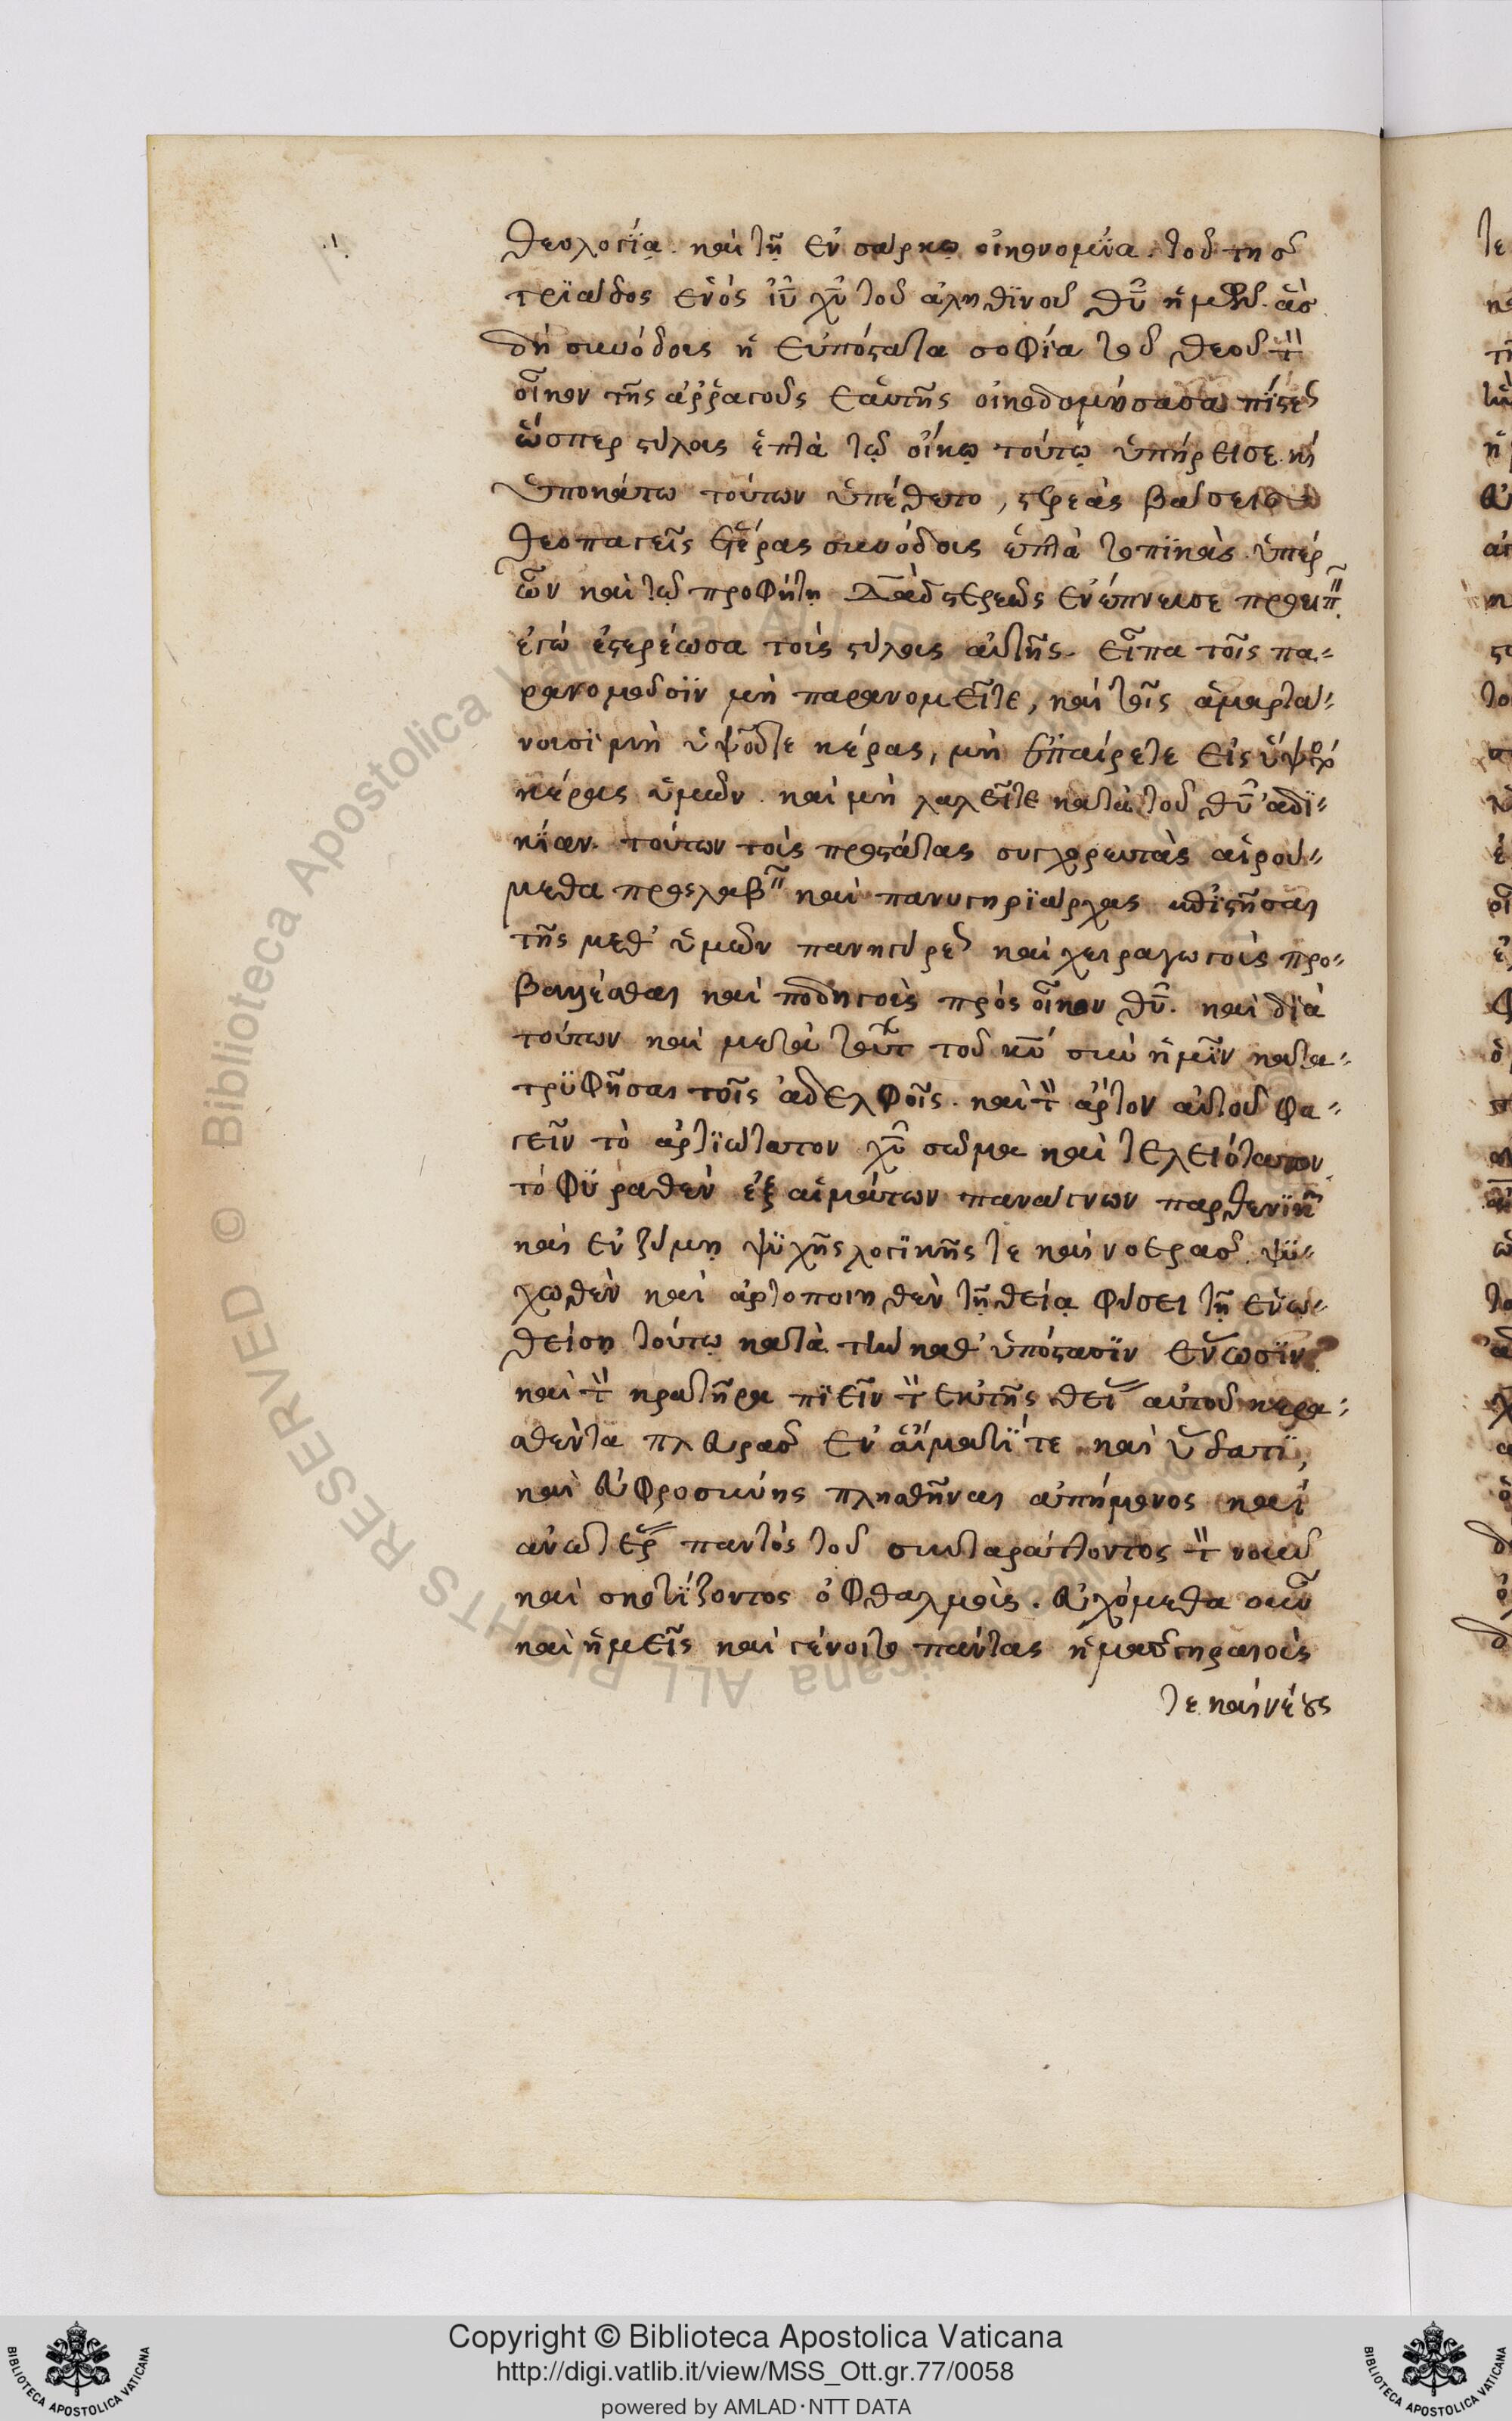 θεολογία. καὶ τῇ ἐν σαρκὶ οἰκονομία. τοῦ τῆς
τριάδος ἑνὸς ἰῦ χῦ τοῦ ἀληθινοῦ θῦ ἡμῶν. ἃς
δὴ συνόδους ἡ ἐνυπόστατος σοφία τοῦ θεοῦ τὸν
οἶκον τῆς ἀρραγοῦς ἑαυτῆς οἰκοδομήσασα πίστεως
ὥσπερ στύλους ἑπτὰ τῷ οἴκῳ τούτῳ ὑπήρεισε. καὶ
ὑποκάτω τούτων ὑπέθετο, στερεὰς βάσεις
θεοπαγεῖς ἑτέρας συνόδους ἑπτὰ τοπικάς. ὑπὲρ
ὧν καὶ τῷ προφήτῃ δᾶδ στερεῶς ἐνέπνευσε προειπεῖν
ἐγὼ ἐστερέωσα τοὺς στύλους αὐτῆς. εἶπα τοῖς πα-
ρανομοῦσιν μὴ παρανομεῖτε, καὶ τοῖς ἁμαρτά-
νουσι μὴ ὑψοῦτε κέρας, μὴ ἐπαίρετε εἰς ὕψος
κέρας ὑμῶν. καὶ μὴ λαλεῖτε κατὰ τοῦ θῦ ἀδι-
κίαν. τούτων τοὺς προστάτας συγχορευτὰς αἱρού-
μεθα προσλαβεῖν καὶ πανηγυριάρχας καθιστῆσαι
τῆς μεθ' ὑμῶν πανηγύρεως καὶ χειραγωγοὺς προ-
βαλέσθαι καὶ ποδηγοὺς πρὸς οἶκον θῦ. καὶ διὰ
τούτων καὶ μετὰ τούτων τοῦ κῦ σὺν ἡμῖν κατα-
τρυφῆσαι τοῖς ἀδελφοῖς. καὶ τὸν ἄρτον αὐτοῦ φα-
γεῖν τὸ ἀρτιώτατον χῦ σῶμα καὶ τελειότατον
τὸ φυραθὲν ἐξ αἱμάτων παναγνων παρθενικῶν
καὶ ἐν ζύμῃ ψυχῆς λογικῆς τε καὶ νοερᾶς ψυ-
χωθὲν καὶ ἀρτοποιηθὲν τῇ θείᾳ φύσει τῇ ἑνω-
θείσῃ τούτῳ κατὰ τὴν καθ' ὑπόστασιν ἕνωσιν
καὶ τὸν κρατῆρα πιεῖν τὸν ἐκ τῆς θείας αὐτοῦ κερα-
σθέντα πλευρᾶς ἐν αἵματί τε καὶ ὕδατι,
καὶ εὐφροσύνης πλησθῆναι ἀπήμονος καὶ
ἀνωτέρας παντὸς τοῦ συνταράττοντος τὸν νοῦν
καὶ σκοτίζοντος ὀφθαλμούς. εὐχόμεθα οὖν
καὶ ἡμεῖς καὶ γένοιτο πάντας ἡμᾶς γηραιούς
τε καὶ νέους
Copyright © Biblioteca Apostolica Vaticana
http://digi.vatlib.it/view/MSS_Ott.gr.77/0058
powered by AMLAD·NTT DATA